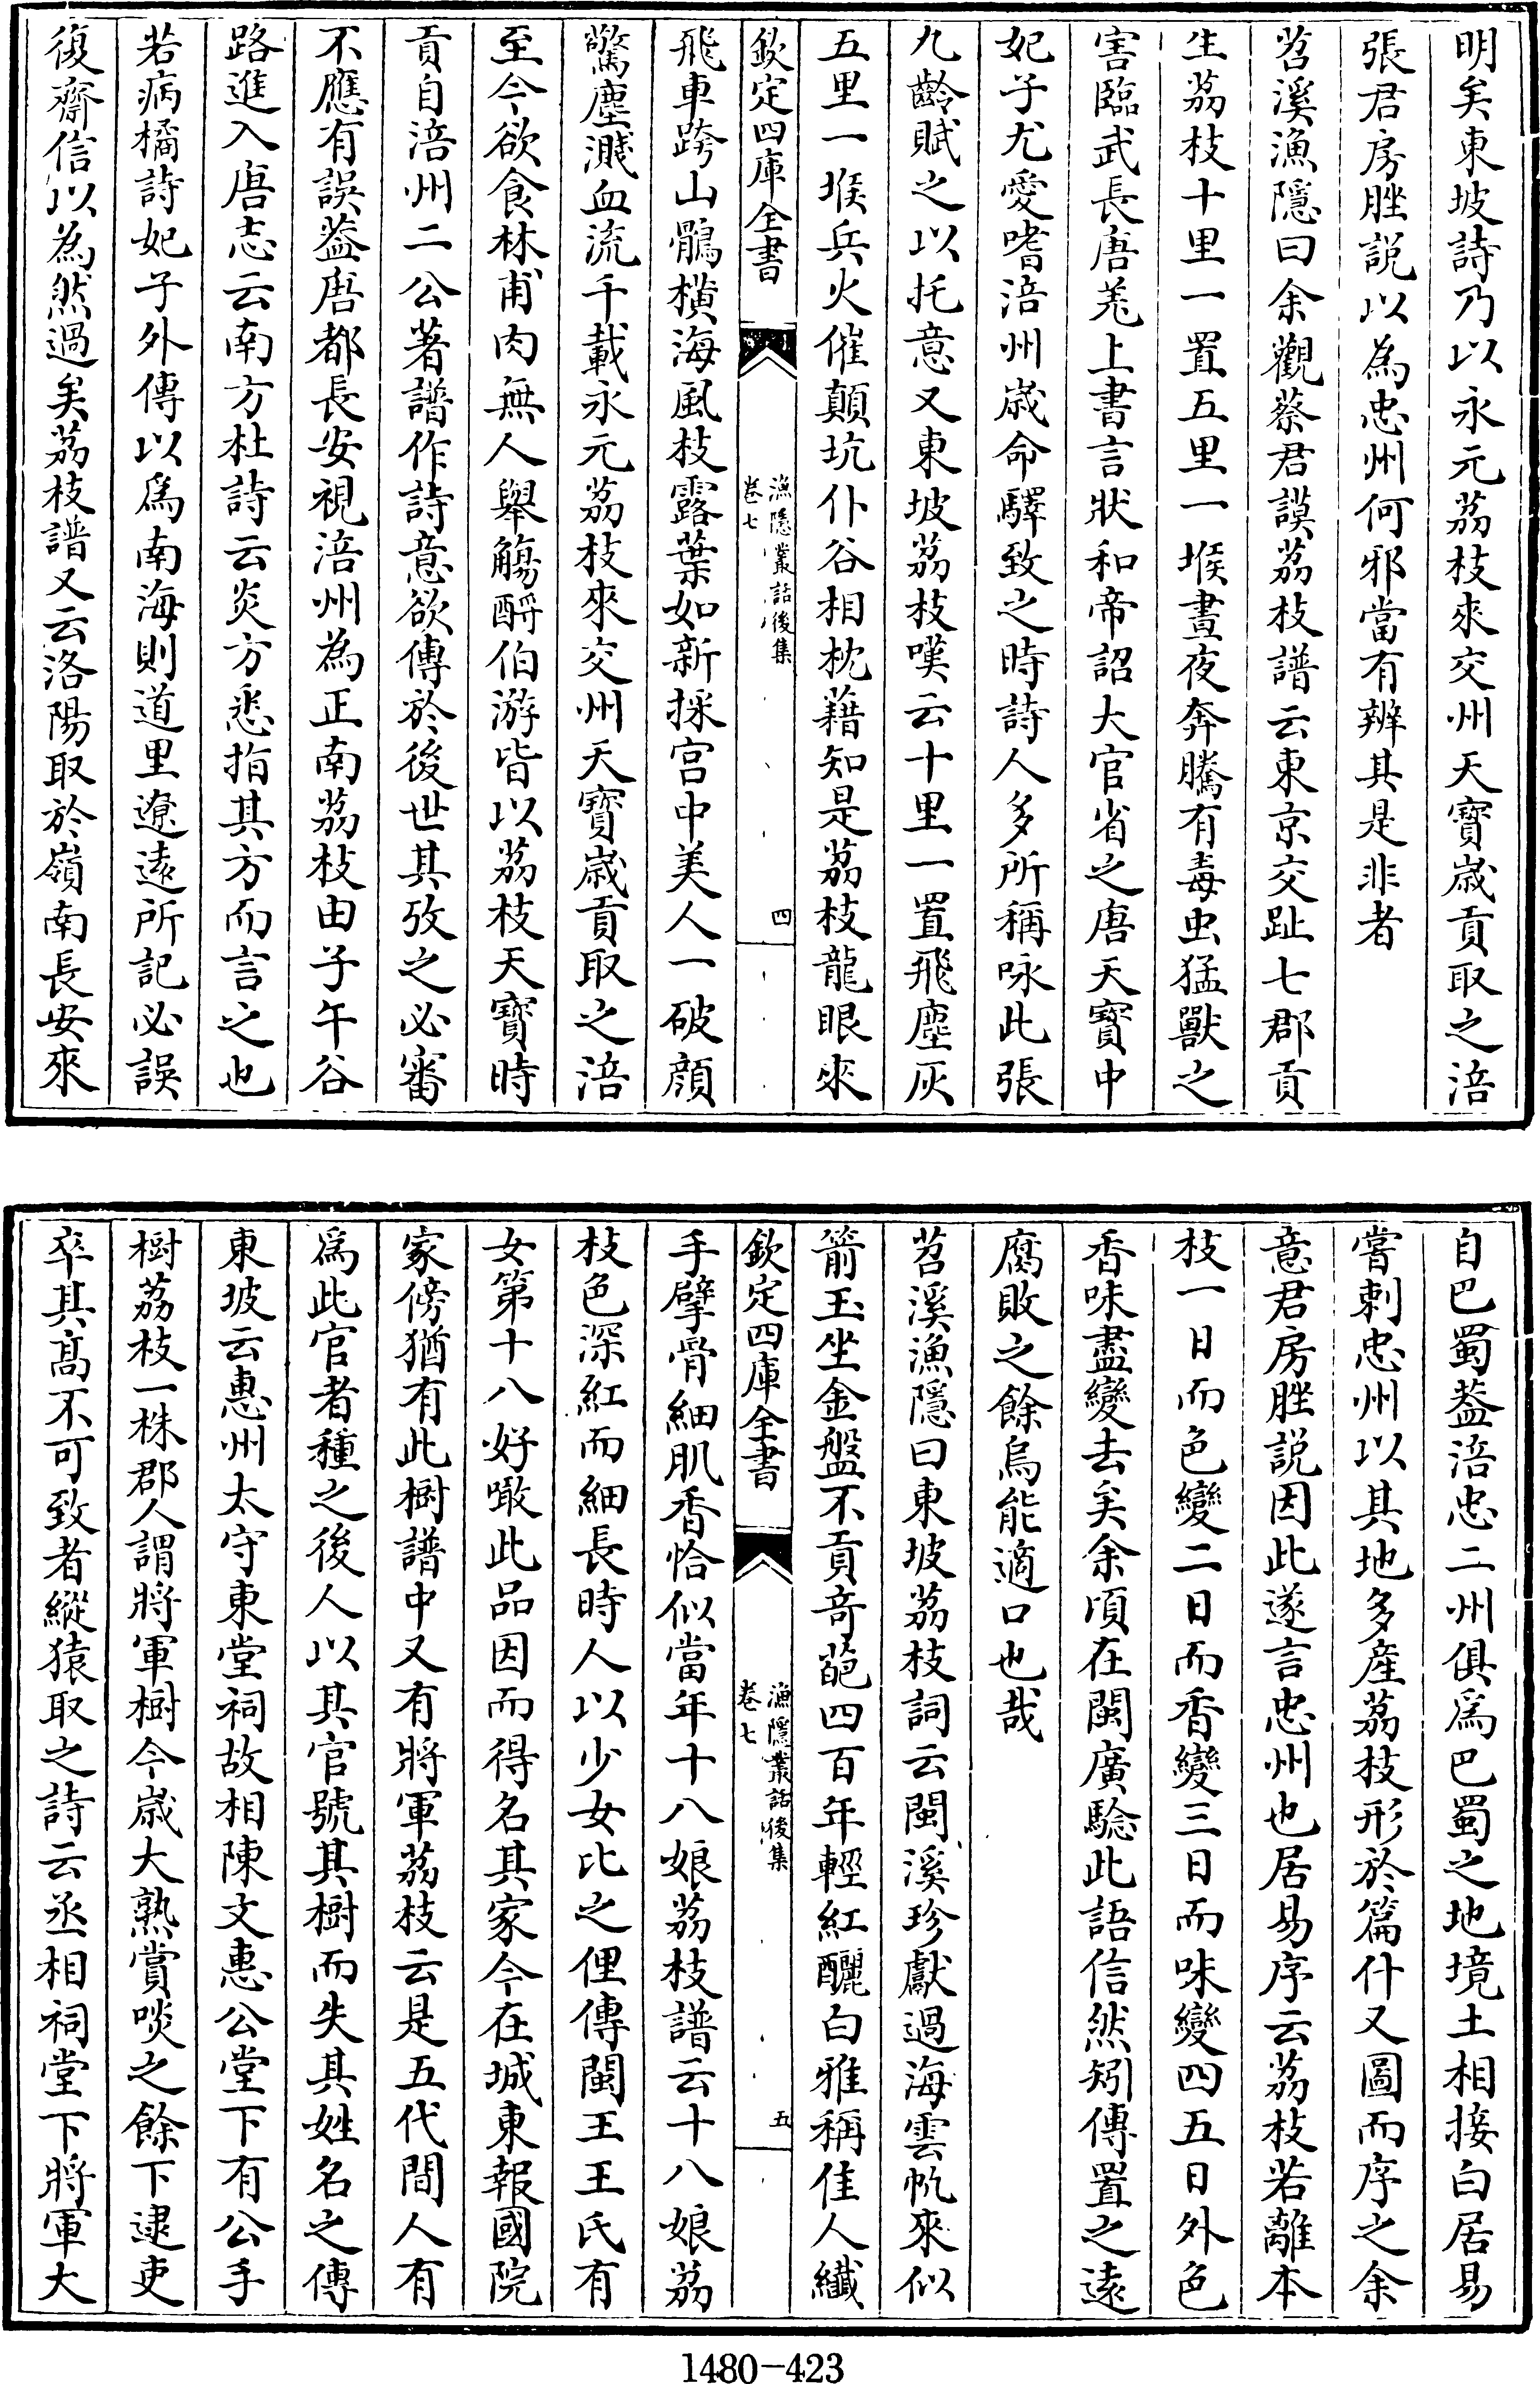 明矣東坡詩乃以永元荔枝來交州天寶嵗貢取之涪
張君房脞説以為忠州何邪當有辨其是非者
苕溪漁隱曰余觀蔡君謨荔枝譜云東京交趾七郡貢
生荔枝十里一置五里一堠晝夜奔騰有毒虫猛獸之
害臨武長唐羗上書言狀和帝詔大官省之唐天寶中
妃子尤愛嗜涪州嵗命驛致之時詩人多所稱咏此張
九齡賦之以托意又東坡荔枝嘆云十里一置飛塵灰
五里一堠兵火催顛坑仆谷相枕藉知是荔枝龍眼來
欽定四庫全書
漁隱叢話後集
卷七
四
飛車跨山鶻橫海風枝露葉如新採宫中美人一破顔
驚塵濺血流千載永元荔枝來交州天寳嵗貢取之涪
至今欲食林甫肉無人舉觴酹伯游皆以荔枝天寶時
貢自涪州二公著譜作詩意欲傳於後世其攷之必審
不應有誤葢唐都長安視涪州為正南荔枝由子午谷
路進入唐志云南方杜詩云炎方悉指其方而言之也
若病橘詩妃子外傳以爲南海則道里遼逺所記必誤
復齋信以為然過矣荔枝譜又云洛陽取於嶺南長安來
自巴蜀葢涪忠二州俱爲巴蜀之地境土相接白居易
嘗刺忠州以其地多産荔枝形於篇什又圖而序之余
意君房脞説因此遂言忠州也居易序云荔枝若離本
枝一日而色變二日而香變三日而味變四五日外色
香味盡變去矣余頃在閩廣驗此語信然矧傳置之逺
腐敗之餘烏能適口也哉
苕溪漁隱曰東坡荔枝詞云閩溪珍獻過海雲帆來似
箭玉坐金盤不貢竒葩四百年輕紅釃白雅稱佳人纎
欽定四庫全書
漁隱叢話後集
卷七
五
手擘骨細肌香恰似當年十八娘荔枝譜云十八娘荔
枝色深紅而細長時人以少女比之俚傳閩王王氏有
女第十八好噉此品因而得名其家今在城東報國院
家傍猶有此樹譜中又有將軍荔枝云是五代間人有
爲此官者種之後人以其官號其樹而失其姓名之傳
東坡云惠州太守東堂祠故相陳文惠公堂下有公手
樹荔枝一株郡人謂將軍樹今嵗大熟賞啖之餘下逮吏
卒其髙不可致者縱猿取之詩云丞相祠堂下將軍大
1480-423